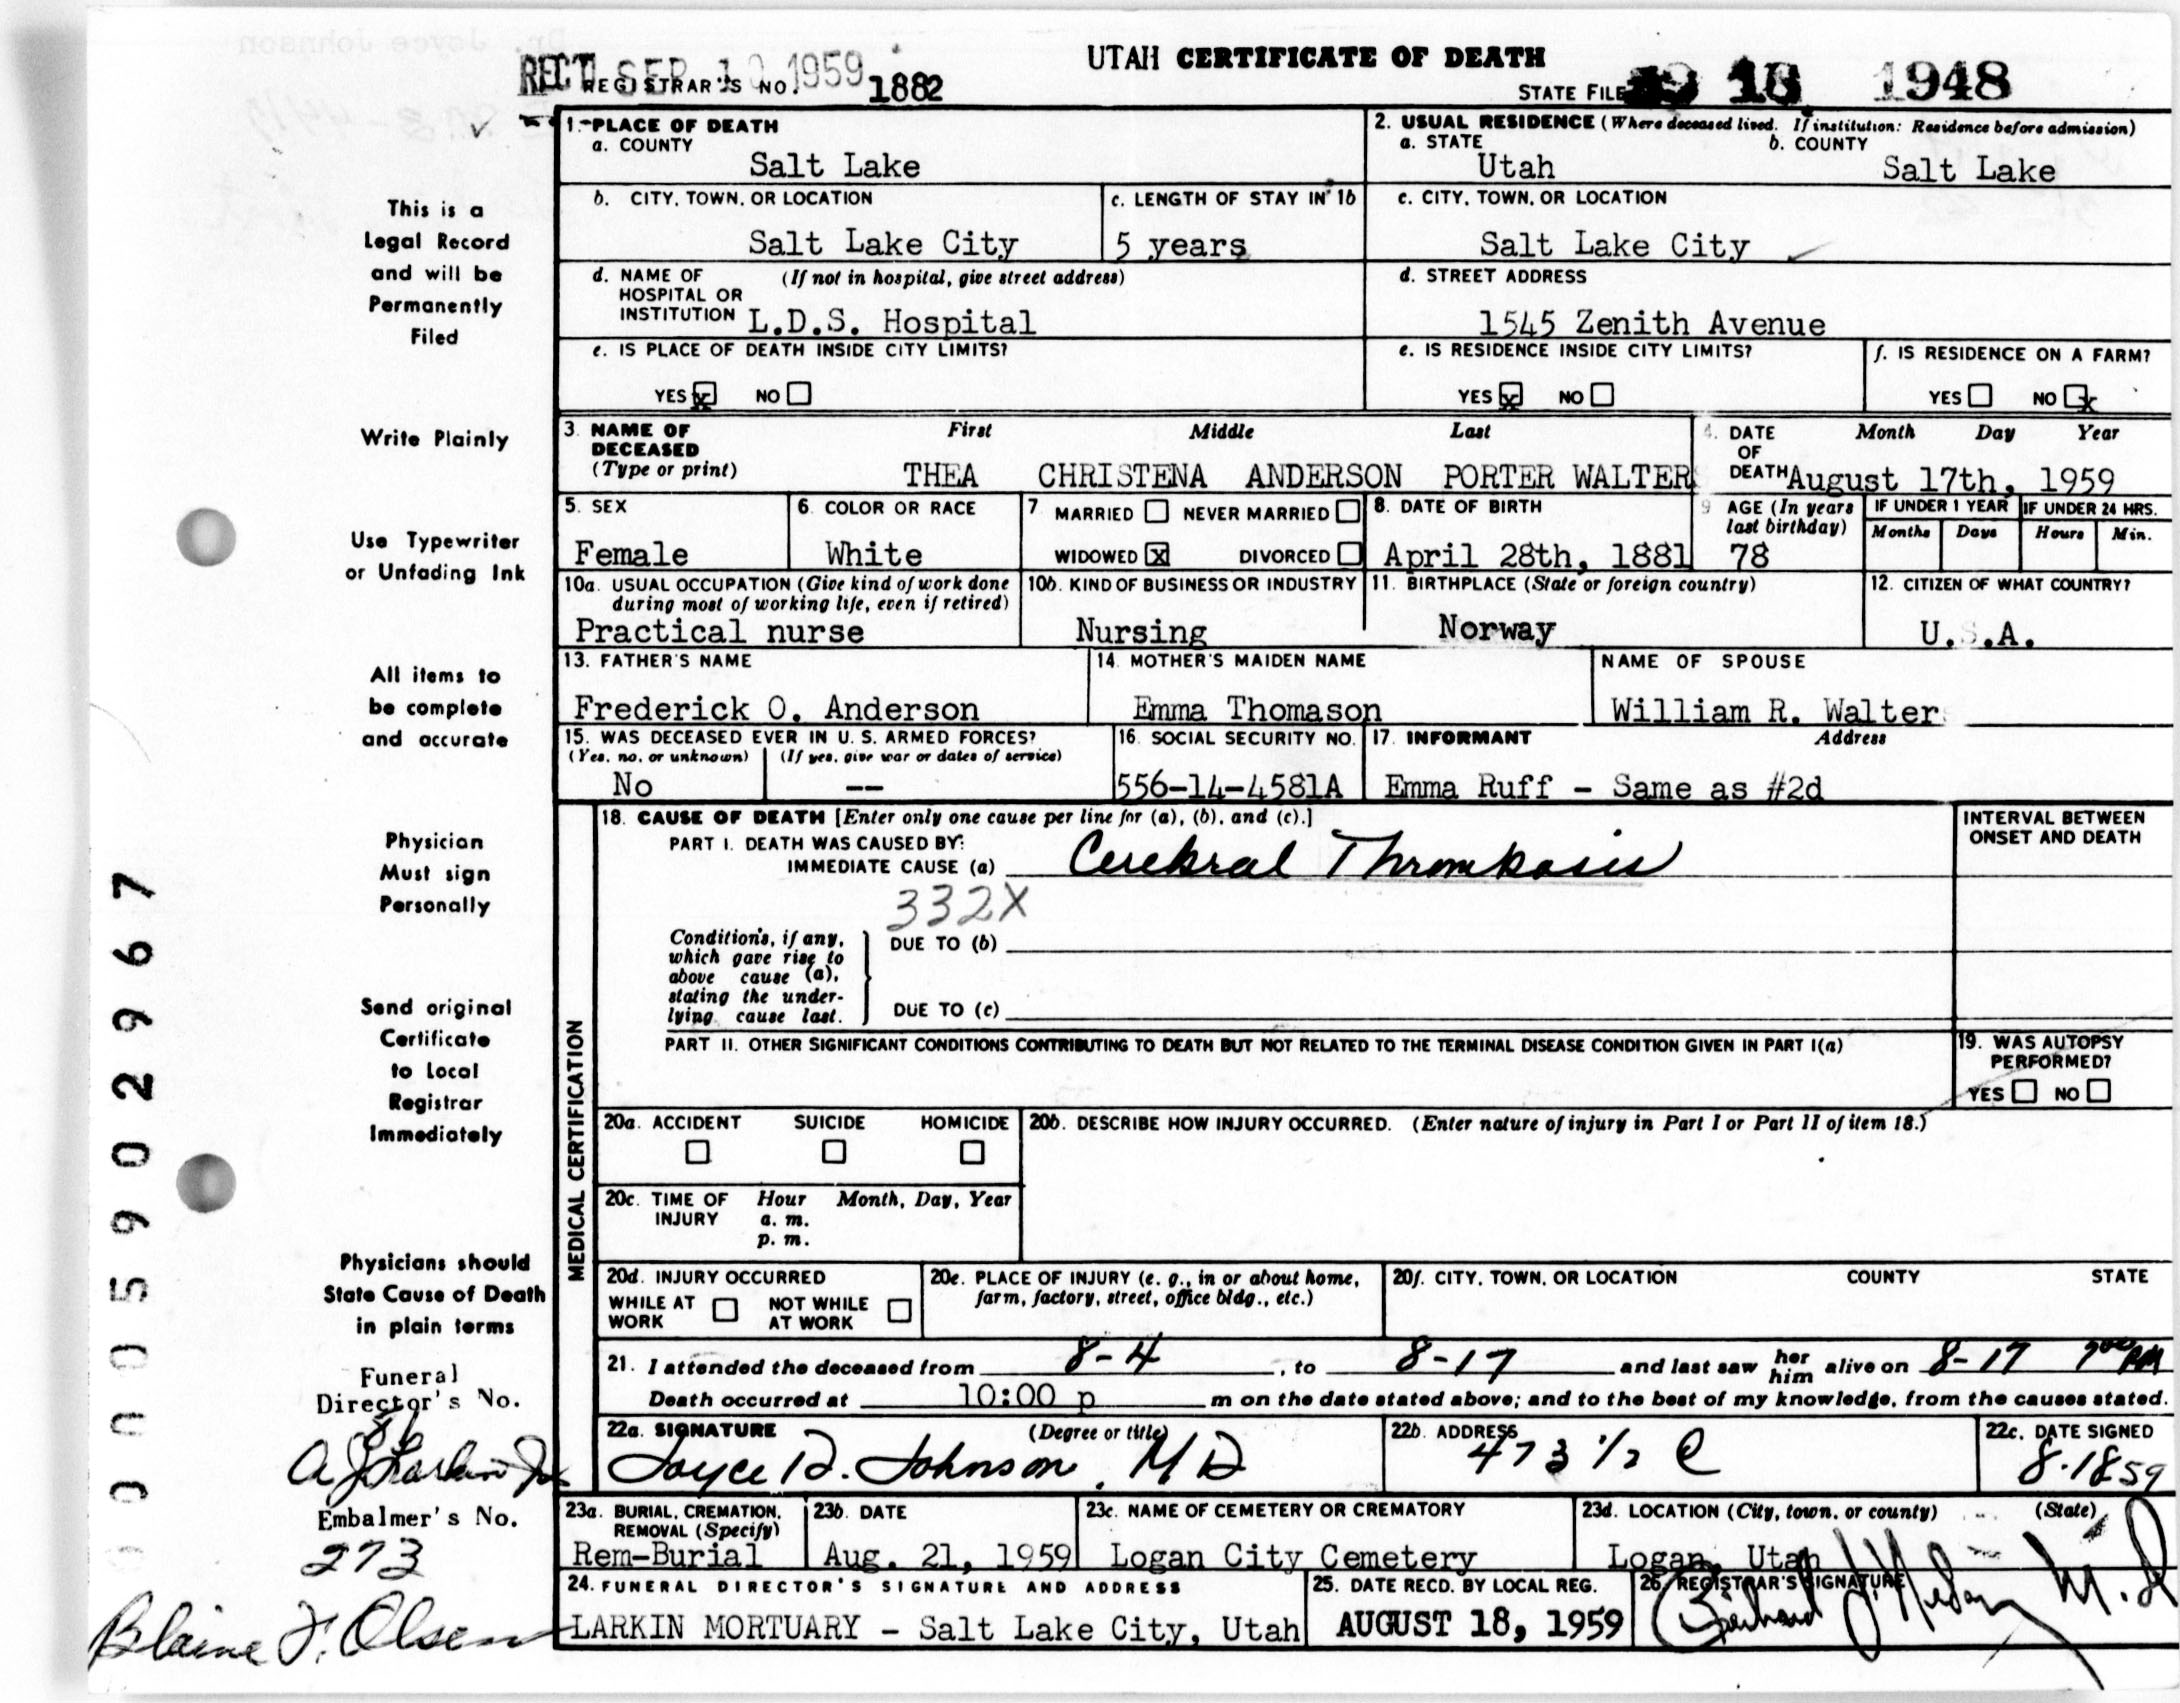 UTAH CERTIFICATE OF DEATH
REC'D SEP 10 1959
REGISTRAR'S NO. 1882
STATE FILE 18 1948
1. PLACE OF DEATH
a. COUNTY
Salt Lake
2. USUAL RESIDENCE (Where deceased lived. If institution: Residence before admission)
a. STATE b. COUNTY
Utah Salt Lake
b. CITY, TOWN, OR LOCATION
Salt Lake City
c. LENGTH OF STAY IN 1b
5 years
c. CITY, TOWN, OR LOCATION
Salt Lake City
d. NAME OF HOSPITAL OR INSTITUTION (If not in hospital, give street address)
L.D.S. Hospital
d. STREET ADDRESS
1545 Zenith Avenue
e. IS PLACE OF DEATH INSIDE CITY LIMITS?
YES x NO
e. IS RESIDENCE INSIDE CITY LIMITS?
YES x NO
f. IS RESIDENCE ON A FARM?
YES NO x
3. NAME OF DECEASED (Type or print)
First Middle Last
THEA CHRISTENA ANDERSON PORTER WALTER
4. DATE OF DEATH Month Day Year
August 17th, 1959
5. SEX
Female
6. COLOR OR RACE
White
7 MARRIED NEVER MARRIED
WIDOWED x DIVORCED
8. DATE OF BIRTH
April 28th, 1881
9 AGE (In years last birthday)
78
IF UNDER 1 YEAR
Months Days
IF UNDER 24 HRS.
Hours Min.
10a. USUAL OCCUPATION (Give kind of work done during most of working life, even if retired)
Practical nurse
10b. KIND OF BUSINESS OR INDUSTRY
Nursing
11. BIRTHPLACE (State or foreign country)
Norway
12. CITIZEN OF WHAT COUNTRY?
U.S.A.
13. FATHER'S NAME
Frederick O. Anderson
14. MOTHER'S MAIDEN NAME
Emma Thomason
NAME OF SPOUSE
William R. Walter
15. WAS DECEASED EVER IN U. S. ARMED FORCES?
(Yes, no, or unknown) (If yes, give war or dates of service)
No --
16. SOCIAL SECURITY NO.
556-14-4581A
17. INFORMANT Address
Emma Ruff - Same as #2d
MEDICAL CERTIFICATION
18. CAUSE OF DEATH [Enter only one cause per line for (a), (b), and (c).]
PART I. DEATH WAS CAUSED BY:
IMMEDIATE CAUSE (a) Cerebral Thrombosis
332X
INTERVAL BETWEEN ONSET AND DEATH
Conditions, if any,
which gave rise to
above cause (a),
stating the under-
lying cause last.
DUE TO (b)
DUE TO (c)
PART II. OTHER SIGNIFICANT CONDITIONS CONTRIBUTING TO DEATH BUT NOT RELATED TO THE TERMINAL DISEASE CONDITION GIVEN IN PART I(a)
19. WAS AUTOPSY PERFORMED?
YES NO
20a. ACCIDENT SUICIDE HOMICIDE
20b. DESCRIBE HOW INJURY OCCURRED. (Enter nature of injury in Part I or Part II of item 18.)
20c. TIME OF INJURY Hour Month, Day, Year
a. m.
p. m.
20d. INJURY OCCURRED
WHILE AT WORK NOT WHILE AT WORK
20e. PLACE OF INJURY (e. g., in or about home, farm, factory, street, office bldg., etc.)
20f. CITY, TOWN, OR LOCATION COUNTY STATE
21. I attended the deceased from 8-4, to 8-17 and last saw her him alive on 8-17 7 00 PM
Death occurred at 10:00 p m on the date stated above; and to the best of my knowledge, from the causes stated.
22a. SIGNATURE (Degree or title)
Joyce D. Johnson, MD
22b. ADDRESS
473 1/2 C
22c. DATE SIGNED
8-18 59
23a. BURIAL, CREMATION, REMOVAL (Specify)
Rem-Burial
23b. DATE
Aug. 21, 1959
23c. NAME OF CEMETERY OR CREMATORY
Logan City Cemetery
23d. LOCATION (City, town, or county) (State)
Logan, Utah
24. FUNERAL DIRECTOR'S SIGNATURE AND ADDRESS
LARKIN MORTUARY - Salt Lake City, Utah
25. DATE RECD. BY LOCAL REG.
AUGUST 18, 1959
26. REGISTRAR'S SIGNATURE
M.D.
This is a
Legal Record
and will be
Permanently
Filed
Write Plainly
Use Typewriter
or Unfading Ink
All items to
be complete
and accurate
Physician
Must sign
Personally
Send original
Certificate
to Local
Registrar
Immediately
Physicians should
State Cause of Death
in plain terms
Funeral
Director's No.
81
A J Larkin Jr
Embalmer's No.
273
Blaine F. Olsen
000590 2967